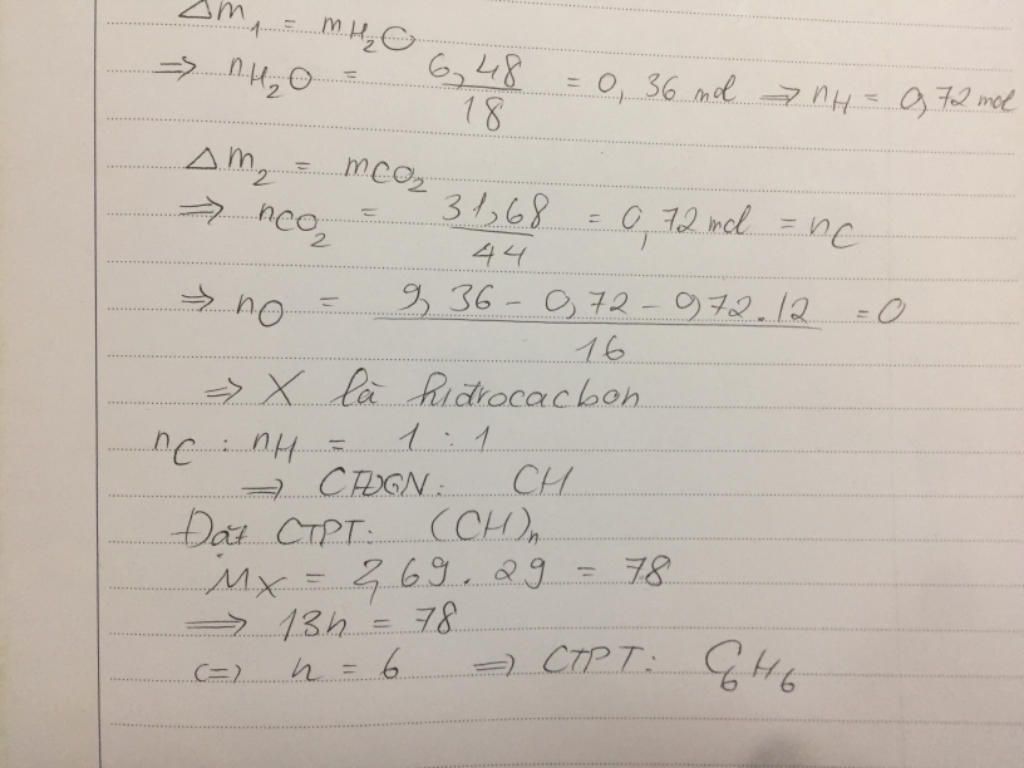 Δm₁ = mH₂O
⇒ nH₂O = 6,48/18 = 0,36 mol ⇒ nH = 0,72 mol
Δm₂ = mCO₂
⇒ nCO₂ = 31,68/44 = 0,72 mol = nC
⇒ nO = (9,36 - 0,72 - 0,72.12)/16 = 0
⇒ X là hiđrocacbon
nC : nH = 1 : 1
⇒ CTĐGN: CH
Đặt CTPT: (CH)ₙ
MX = 2,69.29 = 78
⇒ 13n = 78
(=) n = 6 ⇒ CTPT: C₆H₆